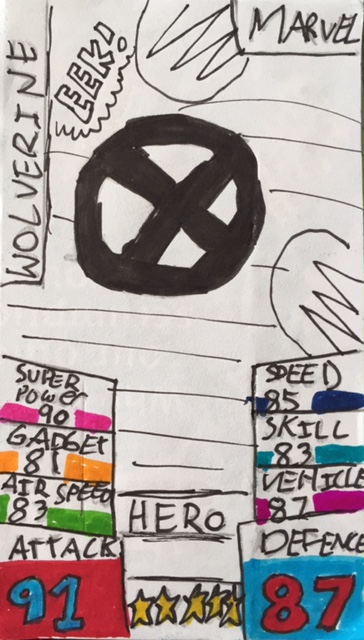 WOLVERINE
EEK!
MARVEL
SUPER
POWER
90
GADGET
81
AIR SPEED
83
ATTACK
91
HERO
SPEED
85
SKILL
83
VEHICLE
87
DEFENCE
87